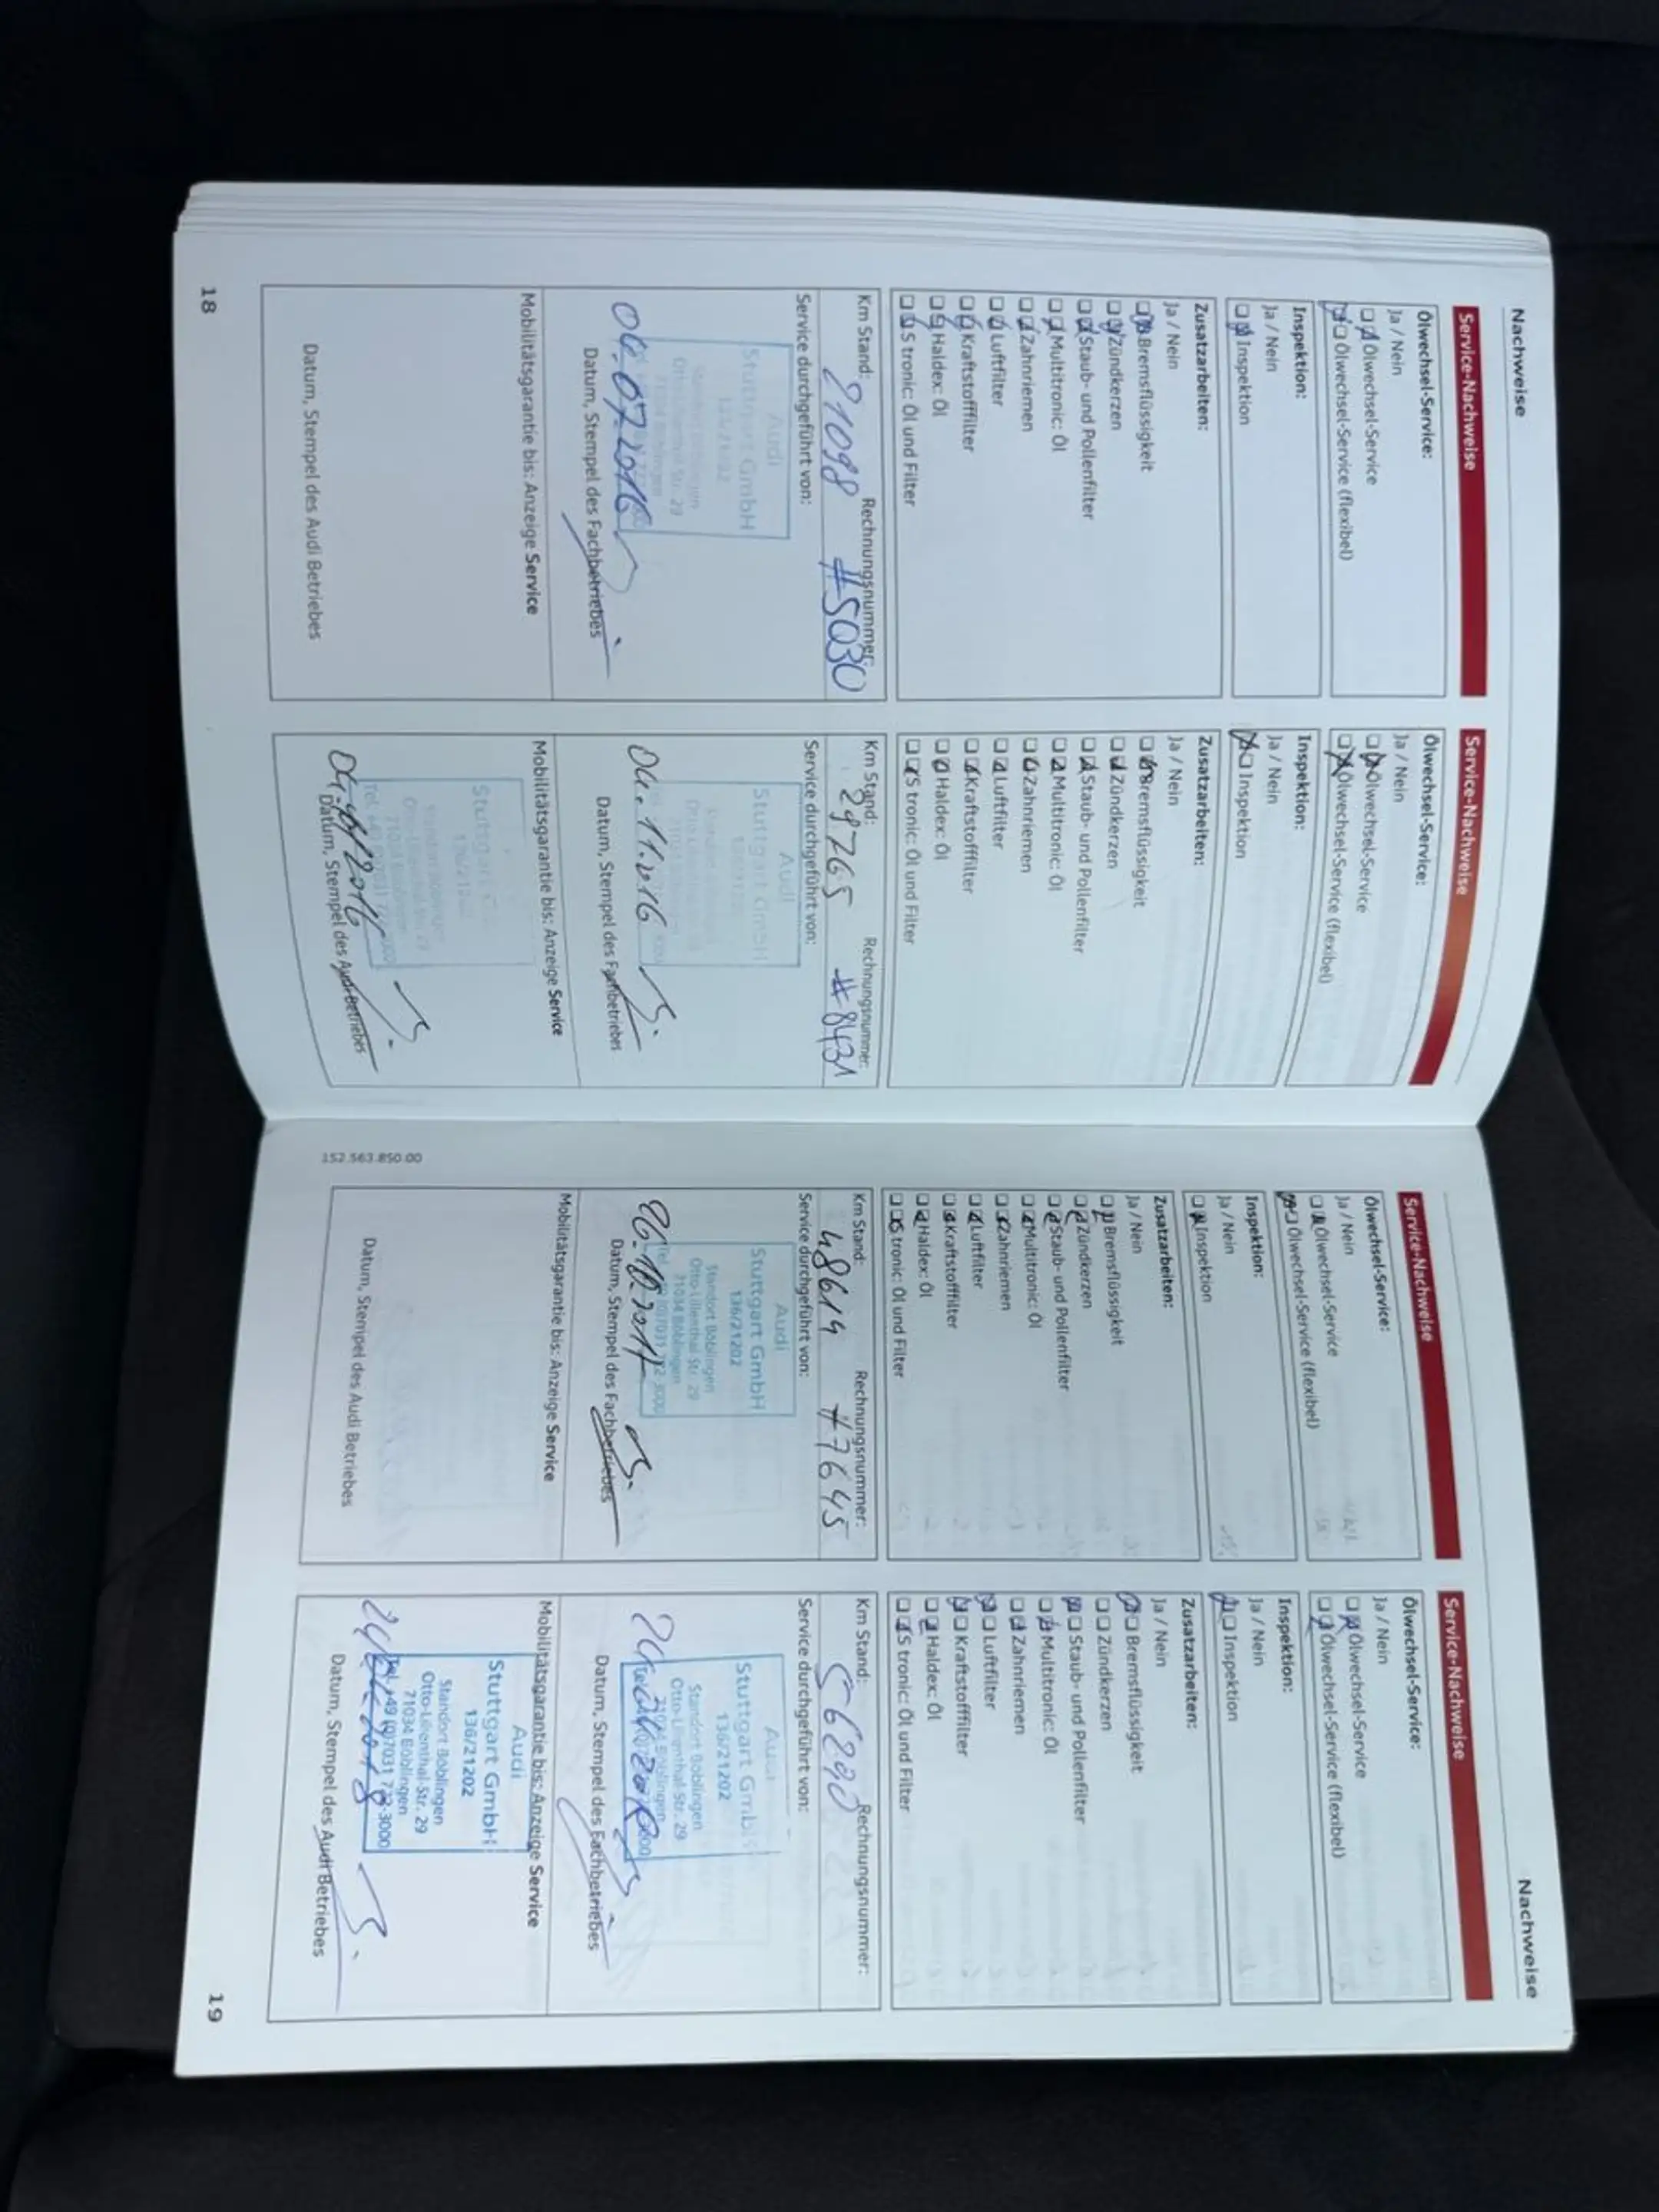 Nachweise
Service-Nachweise
Ölwechsel-Service:
Ja / Nein
Ölwechsel-Service
Ölwechsel-Service (flexibel)
Inspektion:
Ja / Nein
Inspektion
Zusatzarbeiten:
Ja / Nein
Bremsflüssigkeit
Zündkerzen
Staub- und Pollenfilter
Multitronic: Öl
Zahnriemen
Luftfilter
Kraftstofffilter
Haldex: Öl
S tronic: Öl und Filter
Km Stand: Rechnungsnummer:
21098 #5030
Service durchgeführt von:
Audi
Stuttgart GmbH
04.07.2016
Datum, Stempel des Fachbetriebes
Mobilitätsgarantie bis: Anzeige Service
Datum, Stempel des Audi Betriebes
18
Service-Nachweise
Ölwechsel-Service:
Ja / Nein
Ölwechsel-Service
Ölwechsel-Service (flexibel)
Inspektion:
Ja / Nein
Inspektion
Zusatzarbeiten:
Ja / Nein
Bremsflüssigkeit
Zündkerzen
Staub- und Pollenfilter
Multitronic: Öl
Zahnriemen
Luftfilter
Kraftstofffilter
Haldex: Öl
S tronic: Öl und Filter
Km Stand: Rechnungsnummer:
29765 #8431
Service durchgeführt von:
Audi
Stuttgart GmbH
04.11.2016
Datum, Stempel des Fachbetriebes
Mobilitätsgarantie bis: Anzeige Service
Stuttgart
Datum, Stempel des Audi Betriebes
152.563.850.00
Service-Nachweise
Ölwechsel-Service:
Ja / Nein
Ölwechsel-Service
Ölwechsel-Service (flexibel)
Inspektion:
Ja / Nein
Inspektion
Zusatzarbeiten:
Ja / Nein
Bremsflüssigkeit
Zündkerzen
Staub- und Pollenfilter
Multitronic: Öl
Zahnriemen
Luftfilter
Kraftstofffilter
Haldex: Öl
S tronic: Öl und Filter
Km Stand: Rechnungsnummer:
48614 #7645
Service durchgeführt von:
Audi
Stuttgart GmbH
136/21202
Standort Böblingen
Otto-Lilienthal-Str. 29
71034 Böblingen
Datum, Stempel des Fachbetriebes
Mobilitätsgarantie bis: Anzeige Service
Datum, Stempel des Audi Betriebes
Nachweise
Service-Nachweise
Ölwechsel-Service:
Ja / Nein
Ölwechsel-Service
Ölwechsel-Service (flexibel)
Inspektion:
Ja / Nein
Inspektion
Zusatzarbeiten:
Ja / Nein
Bremsflüssigkeit
Zündkerzen
Staub- und Pollenfilter
Multitronic: Öl
Zahnriemen
Luftfilter
Kraftstofffilter
Haldex: Öl
S tronic: Öl und Filter
Km Stand: Rechnungsnummer:
56290
Service durchgeführt von:
Audi
Stuttgart GmbH
136/21202
Standort Böblingen
Otto-Lilienthal-Str. 29
71034 Böblingen
Datum, Stempel des Fachbetriebes
Mobilitätsgarantie bis: Anzeige Service
Audi
Stuttgart GmbH
136/21202
Standort Böblingen
Otto-Lilienthal-Str. 29
71034 Böblingen
Tel. +49 (0)7031 772-3000
Datum, Stempel des Audi Betriebes
19